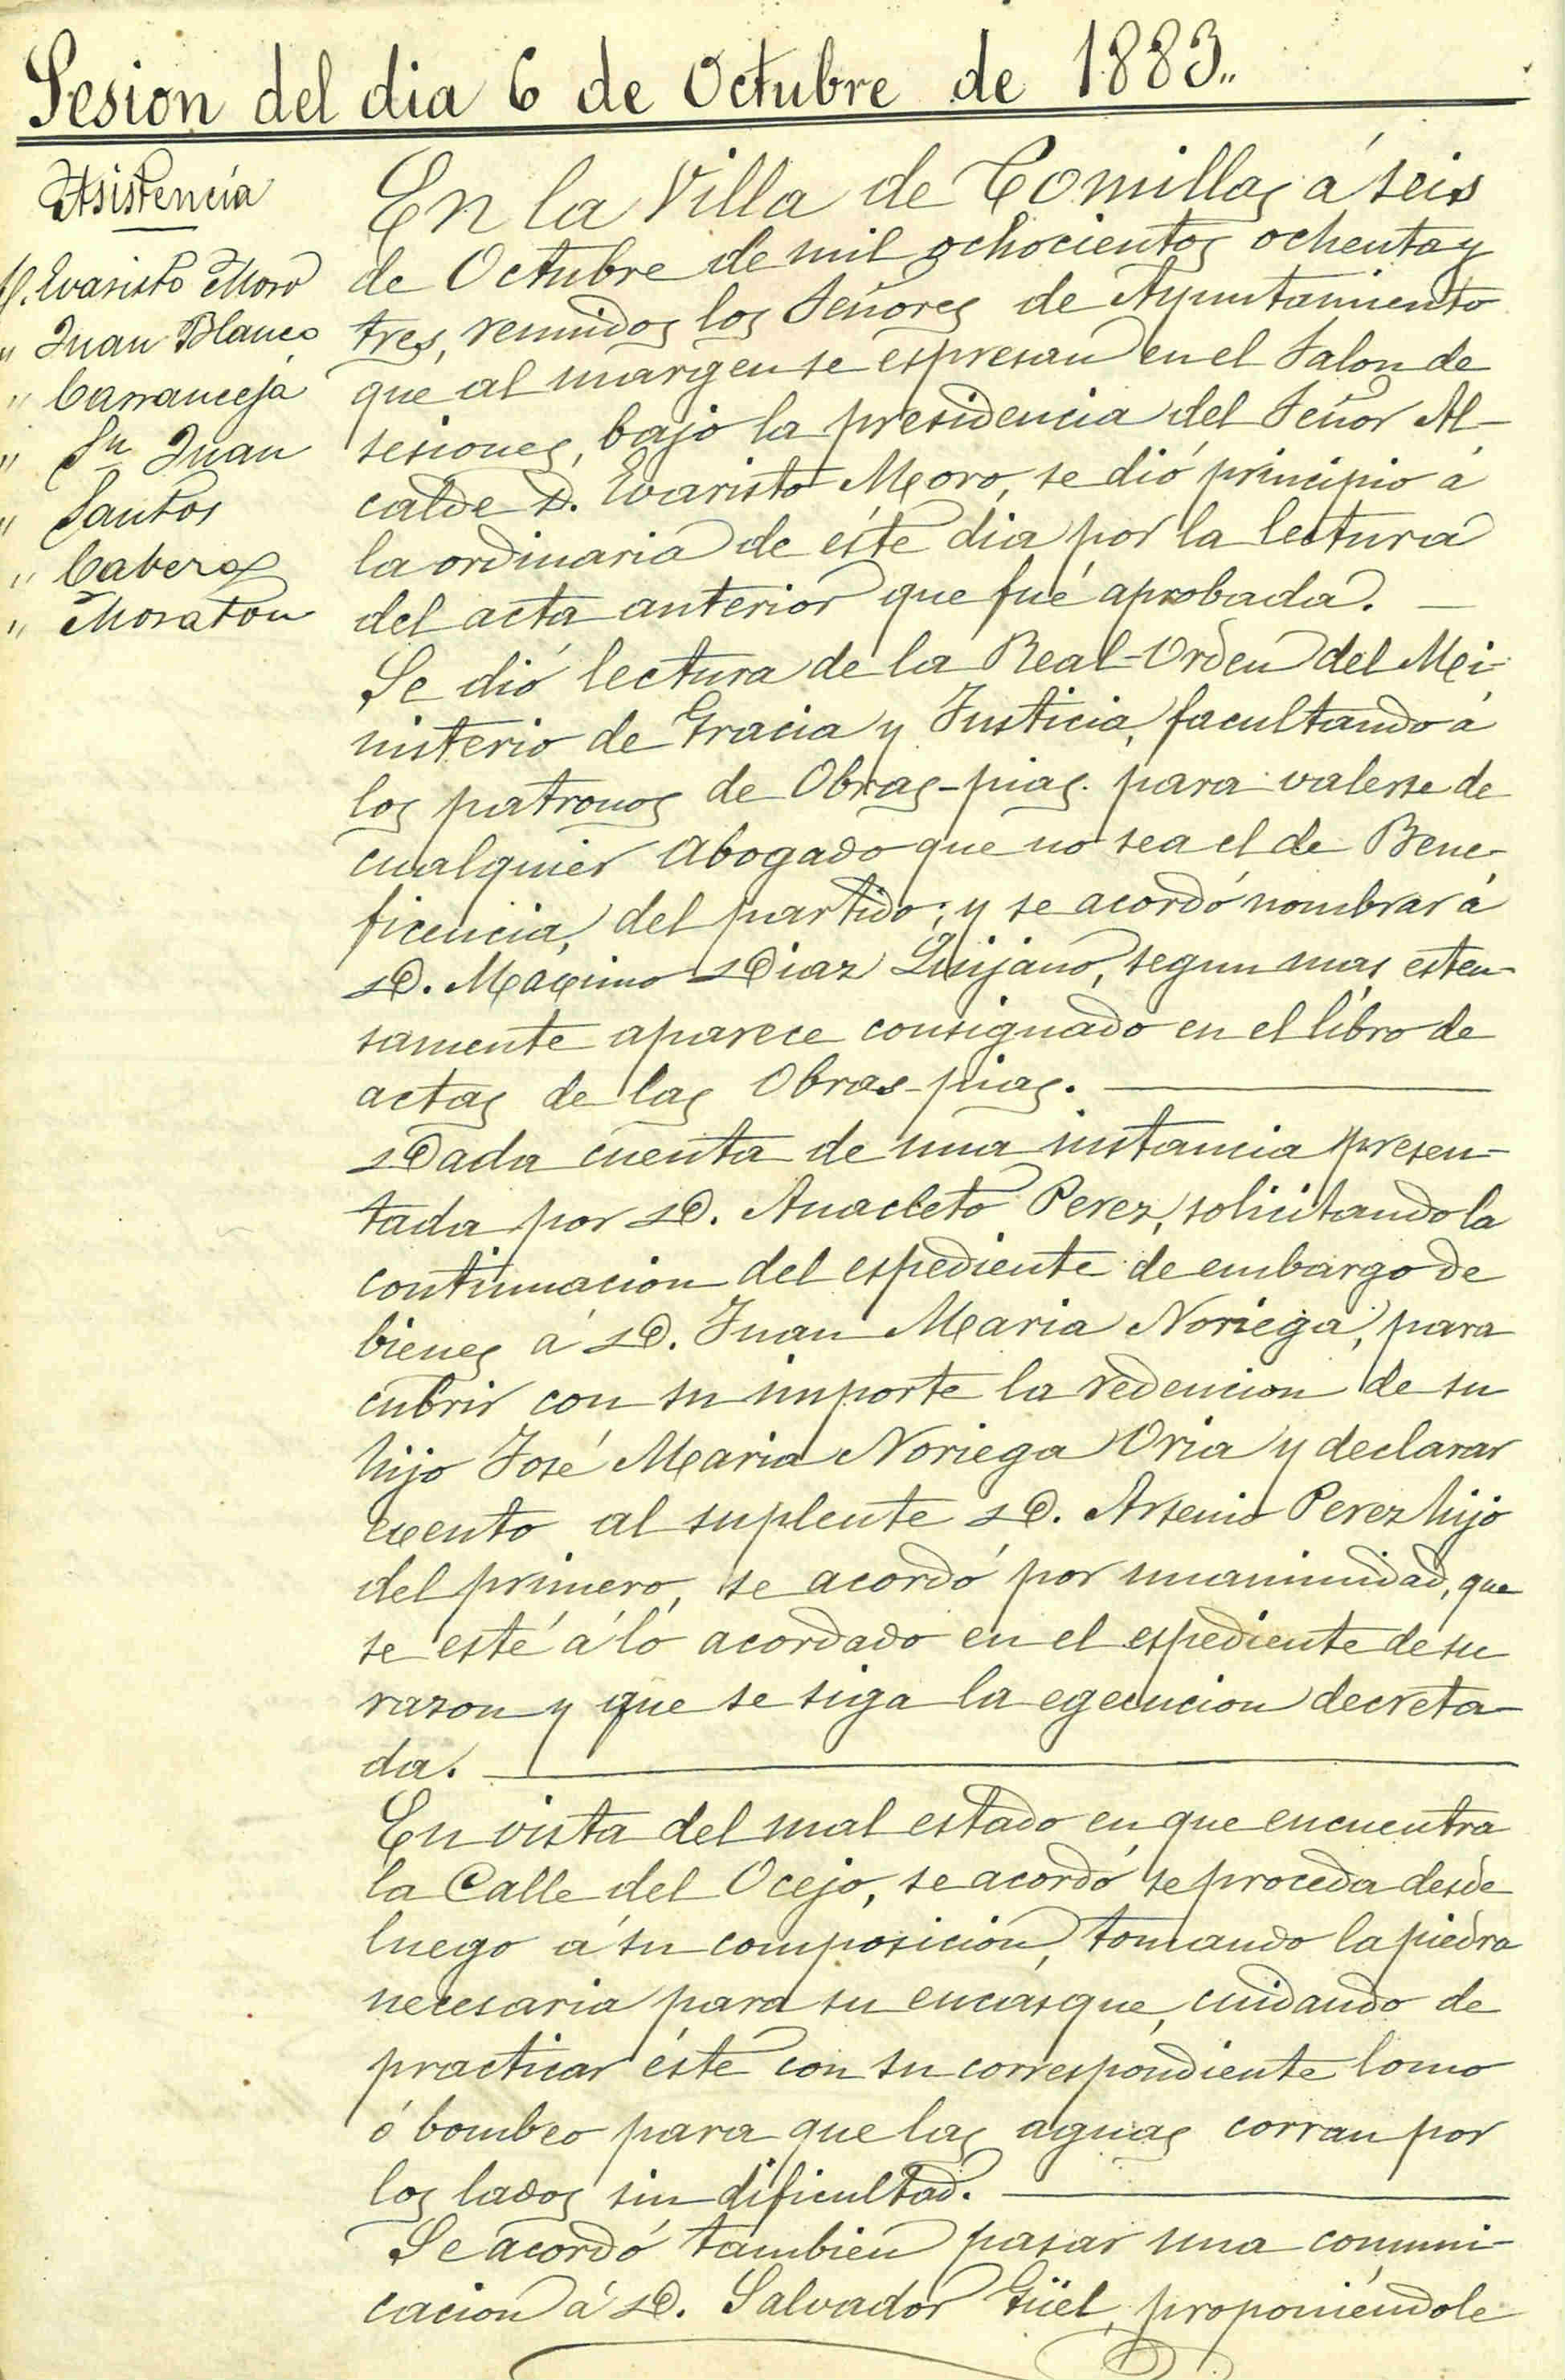 Sesion del dia 6 de Octubre de 1883.,
Asistencia
D. Evaristo Moro
" Juan Blanco
" Carranceja
" Sn Juan
" Santos
" Cabeza
" Moraton
En la Villa de Comillas á seis
de Octubre de mil ochocientos ochenta y
tres, reunidos los Señores de Ayuntamiento
que al margen se espresan en el Salon de
sesiones, bajo la presidencia del Señor Al-
calde D. Evaristo Moro, se dió principio á
la ordinaria de éste dia por la lectura
del acta anterior que fué aprobada. —
Se dió lectura de la Real-Orden del Mi-
nisterio de Gracia y Justicia, facultando á
los patronos de Obras-pias para valerse de
cualquier Abogado que no sea el de Bene-
ficencia, del partido; y se acordó nombrar á
D. Máximo Diaz Quijano, segun mas esten-
samente aparece consignado en el libro de
actas de las Obras-pias. —
Dada cuenta de una instancia presen-
tada por D. Anacleto Perez, solicitando la
continuacion del espediente de embargo de
bienes á D. Juan Maria Noriega, para
cubrir con su importe la redencion de su
hijo José Maria Noriega Oria y declarar
exento al suplente D. Arsenio Perez hijo
del primero, se acordó por unanimidad, que
se esté á lo acordado en el espediente de su
razon y que se siga la egecucion decreta-
da. —
En vista del mal estado en que encuentra
la Calle del Ocejo, se acordó se proceda desde
luego á su composicion, tomando la piedra
necesaria para su encasque, cuidando de
practicar éste con su correspondiente lomo
ó bombeo para que las aguas corran por
los lados sin dificultad. —
Se acordó tambien pasar una comuni-
cacion á D. Salvador Güel, proponiéndole